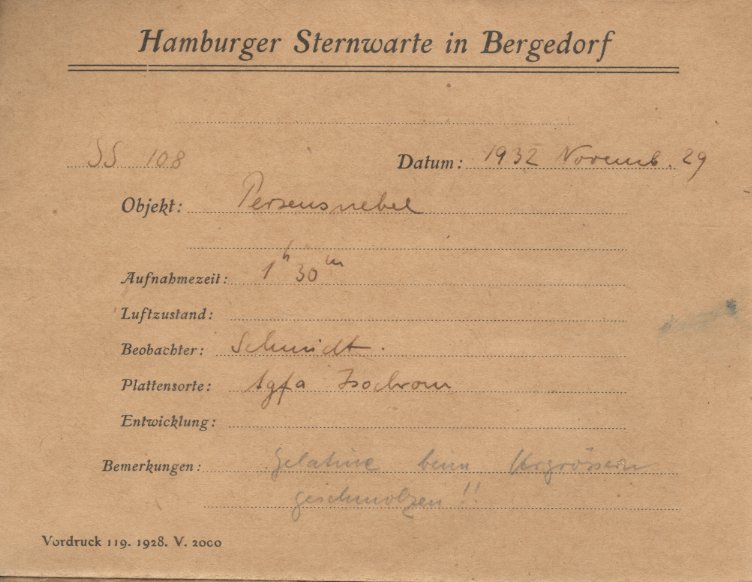 Hamburger Sternwarte in Bergedorf
SS 108 Datum: 1932 Novemb. 29
Objekt: Perseusnebel
Aufnahmezeit: 1h 30m
Luftzustand:
Beobachter: Schmidt.
Plattensorte: Agfa Isochrom
Entwicklung:
Bemerkungen: Gelatine beim Vergrössern
geschmolzen!!
Vordruck 119. 1928. V. 2000